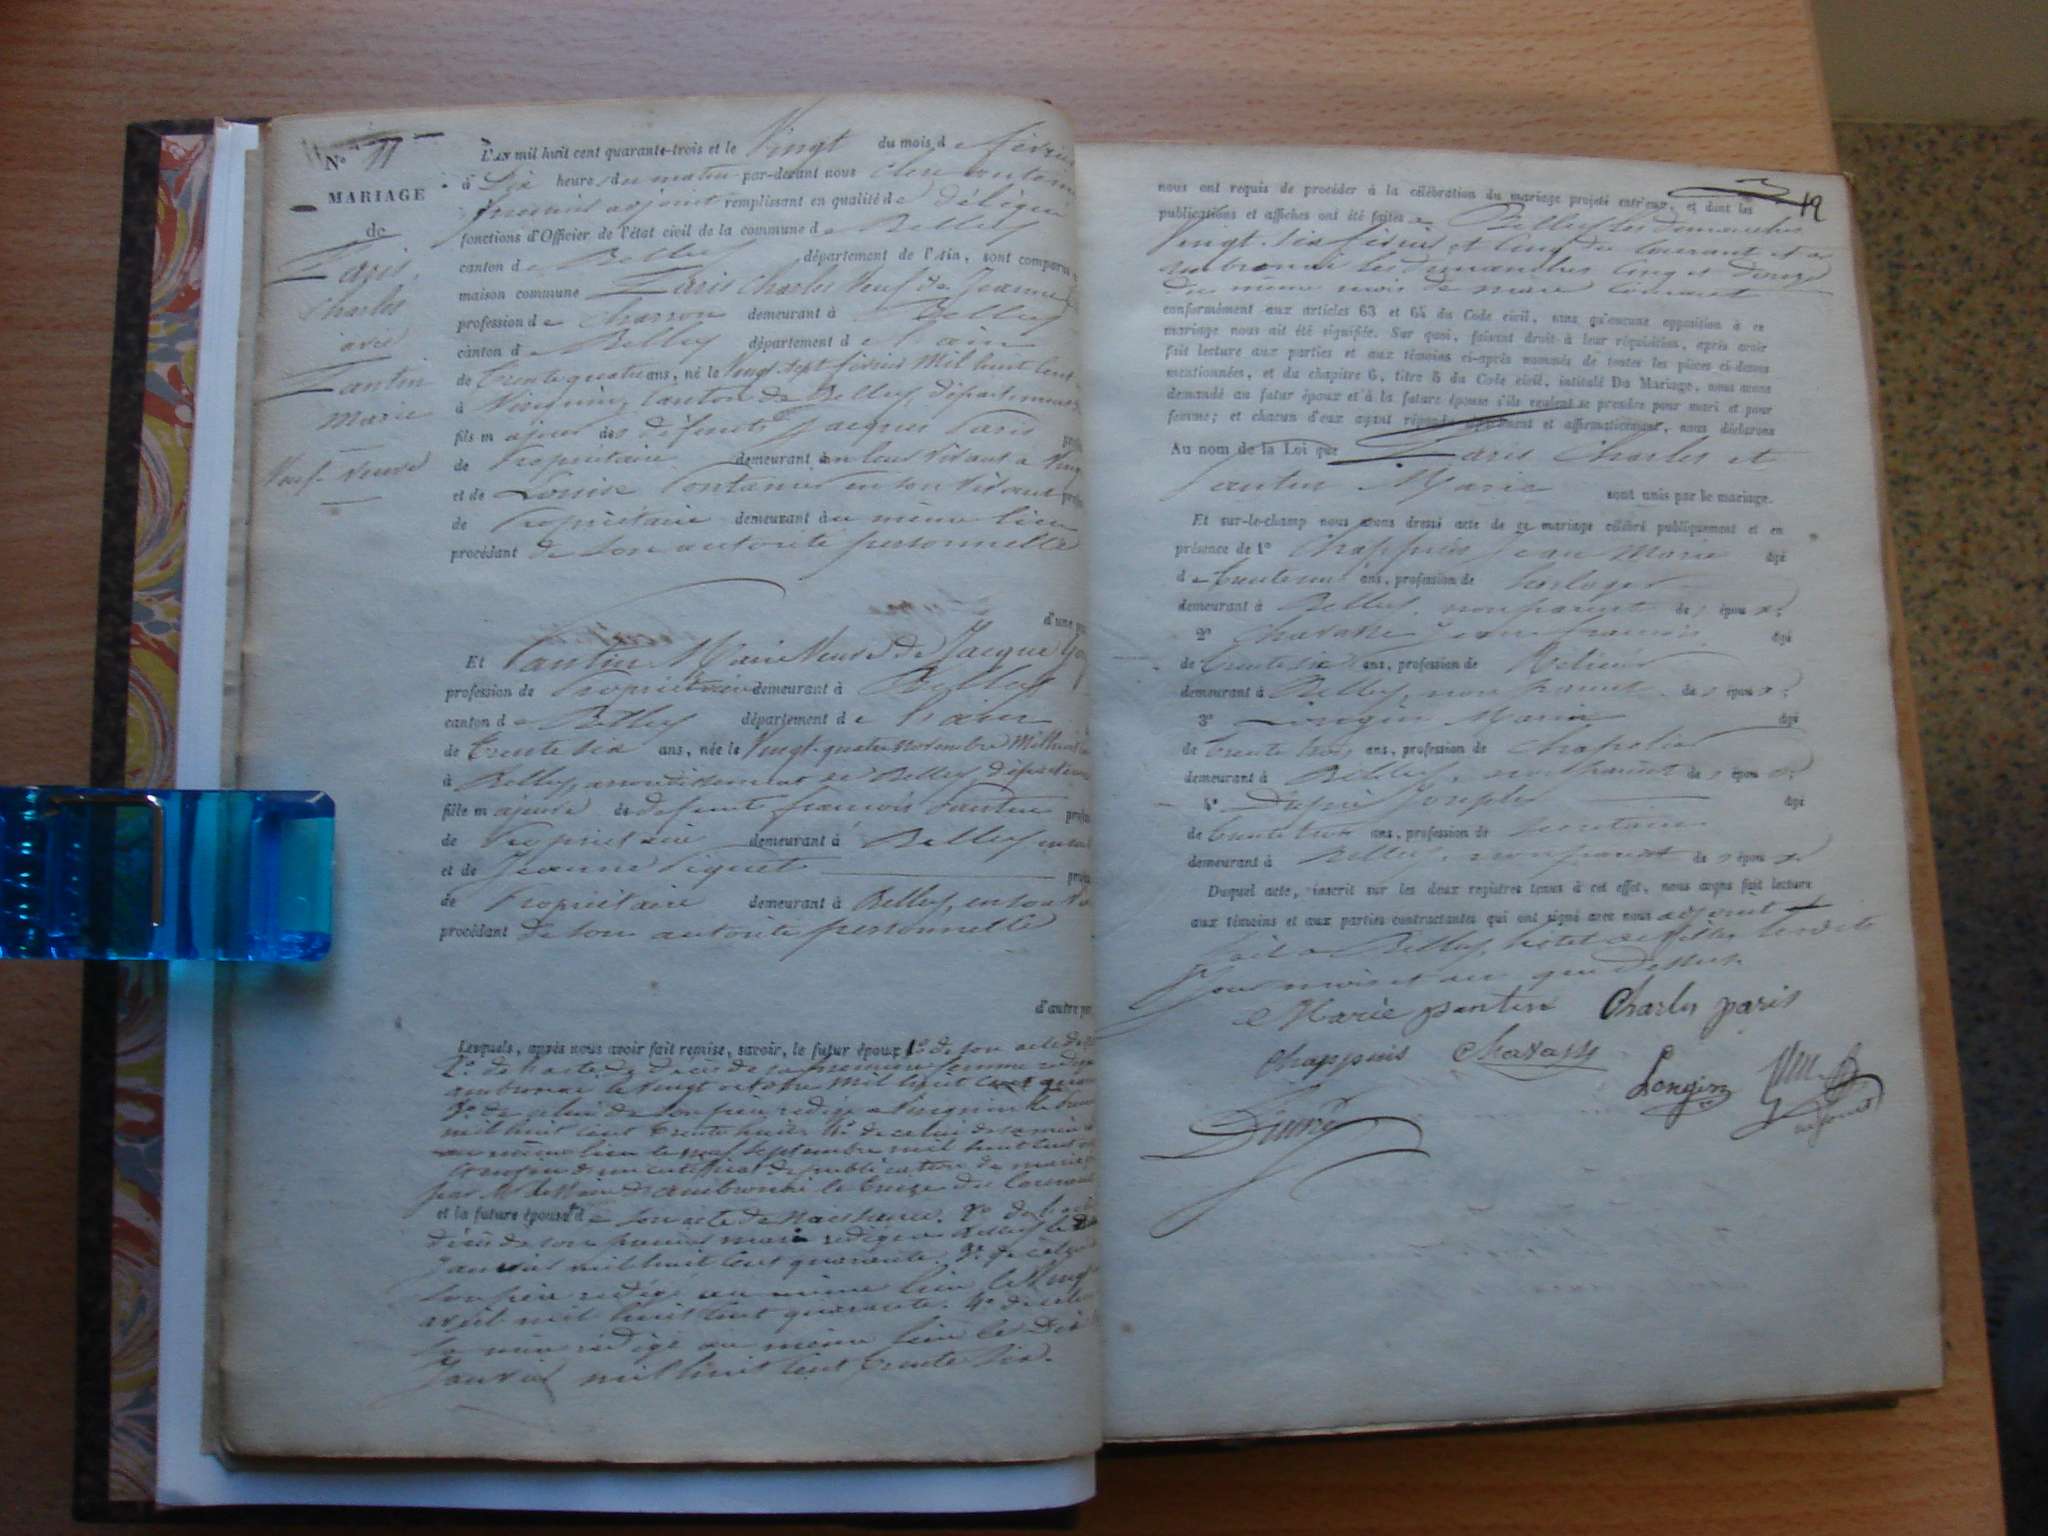 N° 11
MARIAGE
de
Paris
Charles
avec
Pantin
Marie
Veuf-Veuve
L'an mil huit cent quarante-trois et le Vingt du mois de février
à Dix heures du matin par-devant nous
premier adjoint remplissant en qualité de délégué
fonctions d'Officier de l'état civil de la commune de Belley
canton de Belley département de l'Ain, sont comparus
maison commune Paris Charles Veuf de Jeanne
profession de Charron demeurant à Belley
canton de Belley département de l'ain
de trente quatre ans, né le Vingt sept février mil huit cent
à Virignin, canton de Belley, département
fils majeur des défunts Jacques Paris
de Propriétaire demeurant en leur vivant a
et de Louise en son vivant
de Propriétaire demeurant au même lieu
procédant de son autorité personnelle
d'une
Et Pantin Marie Veuve de Jacque
profession de Propriétaire demeurant à Belley
canton de Belley département de l'ain
de trente six ans, née le Vingt-quatre novembre mil huit
à Belley arrondissement de Belley, département
fille majeure de defunt françois Pantin
de Propriétaire demeurant à Belley
et de Jeanne Piquet
de Propriétaire demeurant à Belley, en son
procédant de son autorité personnelle
d'autre
Lesquels, après nous avoir fait remise, savoir, le futur époux 1° de son acte de
2° de l'acte de décès de sa première femme
ambronai le vingt octobre mil huit cent
3° de celui de son père redigé a Virignin le
mil huit cent trente huit 4° de celui de sa mère
au même lieu le septembre mil huit cent
enfin d'un certificat de publication de mariage
par Mr le Maire d'ambronai le treize du Courant
et la future épouse de son acte de naissance. 2° de
décès de son premier mari redigé a Belley le
Janvier mil huit cent quarante. 3° de celui
son père redigé au même lieu le Vingt
avril mil huit cent quarante. 4° de celui
sa mère redigé au même lieu le Dix
Janvier mil huit cent trente six.
19
nous ont requis de procéder à la célébration du mariage projeté entr'eux, et dont les
publications et affiches ont été faites à Belley les dimanches
Vingt-six février et cinq du Courant et a
ambronai les dimanches cinq et douze
du même mois de mars Courant
conformément aux articles 63 et 64 du Code civil, sans qu'aucune opposition à ce
mariage nous ait été signifiée. Sur quoi, faisant droit à leur réquisition, après avoir
fait lecture aux parties et aux témoins ci-après nommés de toutes les pièces ci-dessus
mentionnées, et du chapitre 6, titre 5 du Code civil, intitulé Du Mariage, nous avons
demandé au futur époux et à la future épouse s'ils veulent se prendre pour mari et pour
femme; et chacun d'eux ayant répondu séparément et affirmativement, nous déclarons
Au nom de la Loi que Paris Charles et
Pantin Marie sont unis par le mariage.
Et sur-le-champ nous avons dressé acte de ce mariage célébré publiquement et en
présence de 1° Chappuis Jean Marie âgé
de trente ans, profession de horloger
demeurant à Belley, non parent des époux;
2° Chavasse Jean françois âgé
de trente six ans, profession de
demeurant à Belley, non parent des époux;
3° Longin Marin âgé
de trente trois ans, profession de Chapelier
demeurant à Belley, non parent des époux;
4° Dupré Joseph âgé
de trente trois ans, profession de secrétaire
demeurant à Belley, non parent des époux
Duquel acte, inscrit sur les deux registres tenus à cet effet, nous avons fait lecture
aux témoins et aux parties contractantes qui ont signé avec nous adjoint
fait a Belley, hôtel de Ville, les dits
Jour mois et an que dessus.
Marie pantin Charles paris
Chappuis Chavasse
Longin
Dupré
adjoint